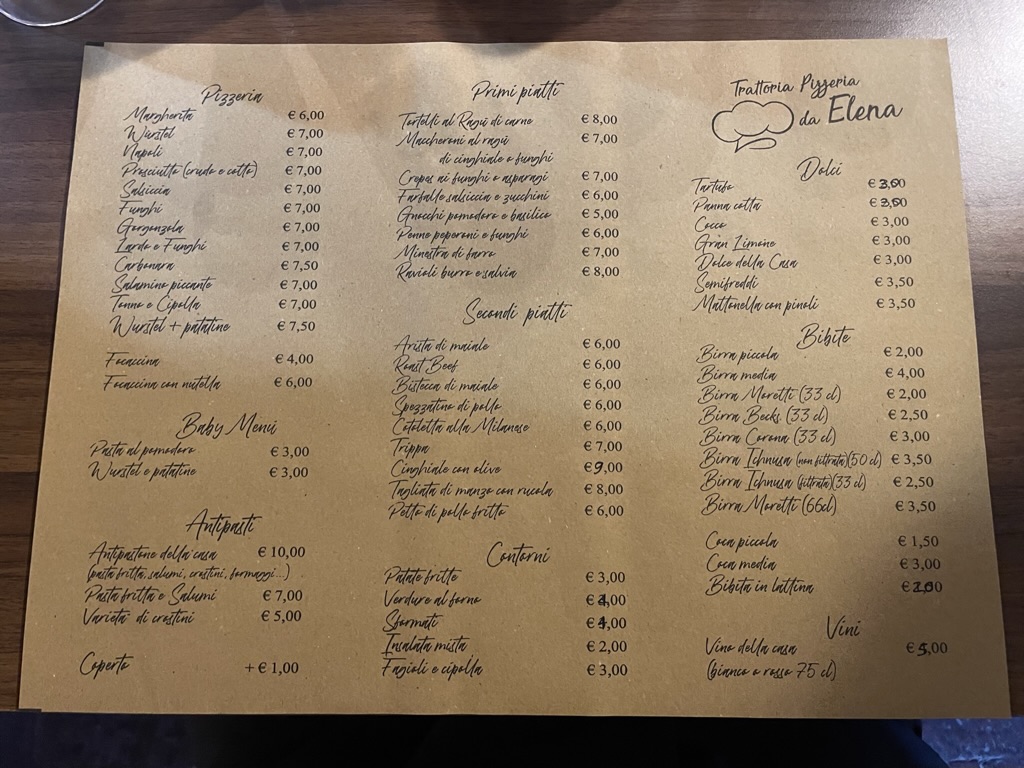 Pizzeria
Margherita € 6,00
Würstel € 7,00
Napoli € 7,00
Prosciutto (crudo e cotto) € 7,00
Salsiccia € 7,00
Funghi € 7,00
Gorgonzola € 7,00
Lardo e Funghi € 7,00
Carbonara € 7,50
Salamino piccante € 7,00
Tonno e Cipolla € 7,00
Wurstel + patatine € 7,50
Focaccina € 4,00
Focaccina con nutella € 6,00
Baby Menù
Pasta al pomodoro € 3,00
Wurstel e patatine € 3,00
Antipasti
Antipastone della casa € 10,00
(pasta fritta, salumi, crostini, formaggi...)
Pasta fritta e Salumi € 7,00
Varietà di crostini € 5,00
Coperto + € 1,00
Primi piatti
Tortelli al Ragù di carne € 8,00
Maccheroni al ragù € 7,00
di cinghiale o funghi
Crepes ai funghi o asparagi € 7,00
Farfalle salsiccia e zucchini € 6,00
Gnocchi pomodoro e basilico € 5,00
Penne peperoni e funghi € 6,00
Minestra di farro € 7,00
Ravioli burro e salvia € 8,00
Secondi piatti
Arista di maiale € 6,00
Roast Beef € 6,00
Bistecca di maiale € 6,00
Spezzatino di pollo € 6,00
Cotoletta alla Milanese € 6,00
Trippa € 7,00
Cinghiale con olive € 9,00
Tagliata di manzo con rucola € 8,00
Petto di pollo fritto € 6,00
Contorni
Patate fritte € 3,00
Verdure al forno € ,00
Sformati € 4,00
Insalata mista € 2,00
Fagioli e cipolla € 3,00
Trattoria Pizzeria
da Elena
Dolci
Tartufo €
Panna cotta €
Cocco € 3,00
Gran Limone € 3,00
Dolce della Casa € 3,00
Semifreddi € 3,50
Mattonella con pinoli € 3,50
Bibite
Birra piccola € 2,00
Birra media € 4,00
Birra Moretti (33 cl) € 2,00
Birra Becks (33 cl) € 2,50
Birra Corona (33 cl) € 3,00
Birra Ichnusa (non filtrata)(50 cl) € 3,50
Birra Ichnusa (filtrata)(33 cl) € 2,50
Birra Moretti (66cl) € 3,50
Coca piccola € 1,50
Coca media € 3,00
Bibita in lattina €
Vini
Vino della casa € 5,00
(bianco o rosso 75 cl)